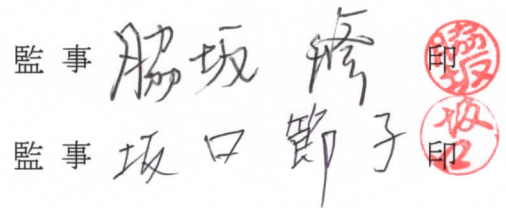 監事 脇坂 修 印
監事 坂口 節子 印